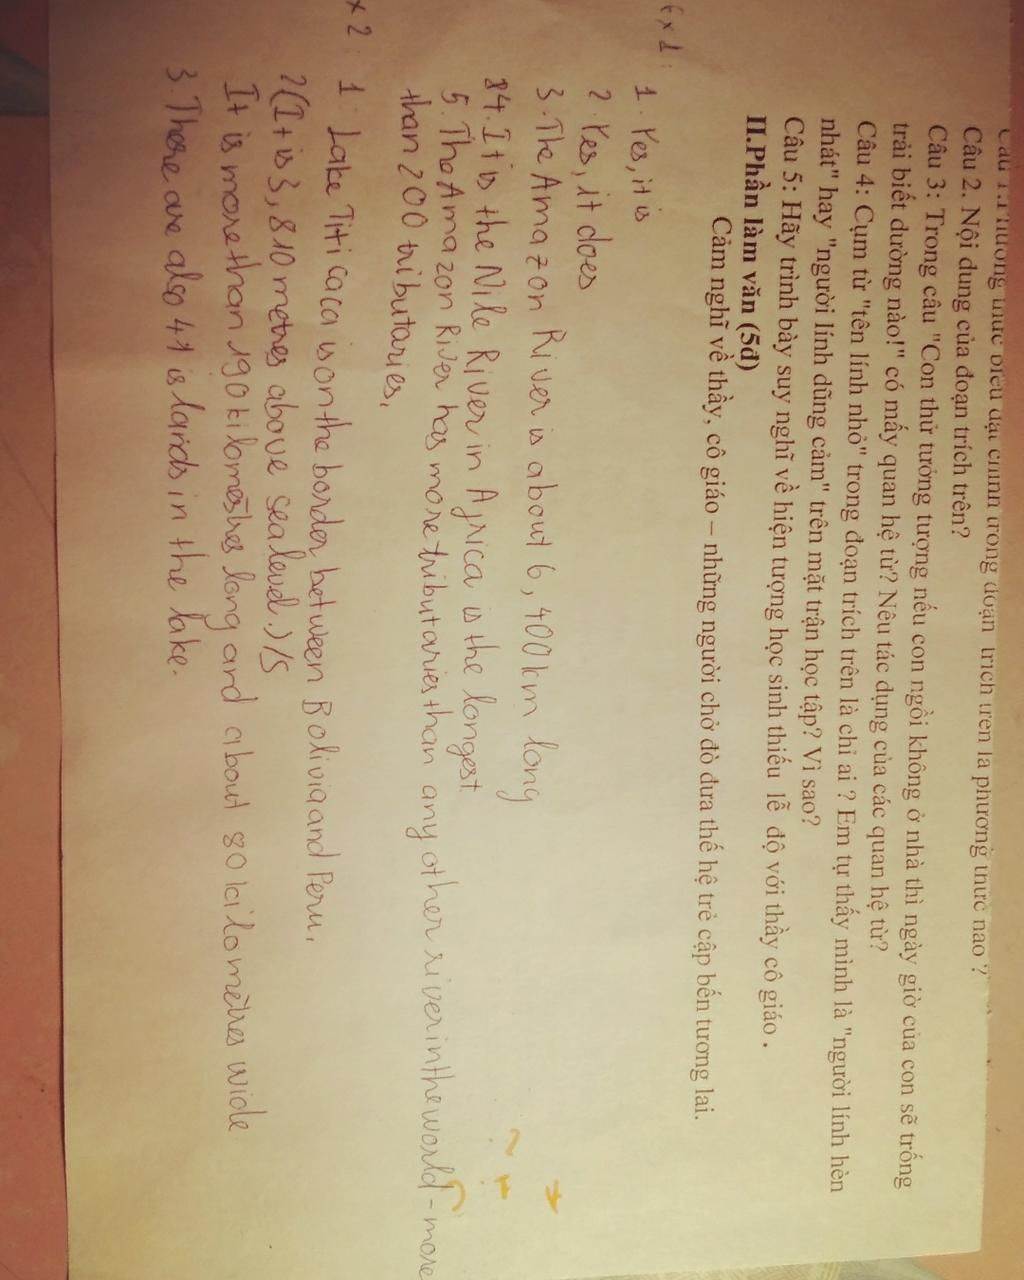 Câu 1.Phương thức biểu đạt chính trong đoạn trích trên là phương thức nào ?
Câu 2. Nội dung của đoạn trích trên?
Câu 3: Trong câu "Con thử tưởng tượng nếu con ngồi không ở nhà thì ngày giờ của con sẽ trống
trải biết dường nào!" có mấy quan hệ từ? Nêu tác dụng của các quan hệ từ?
Câu 4: Cụm từ "tên lính nhỏ" trong đoạn trích trên là chỉ ai ? Em tự thấy mình là "người lính hèn
nhát" hay "người lính dũng cảm" trên mặt trận học tập? Vì sao?
Câu 5: Hãy trình bày suy nghĩ về hiện tượng học sinh thiếu lễ độ với thầy cô giáo .
II.Phần làm văn (5đ)
Cảm nghĩ về thầy, cô giáo – những người chở đò đưa thế hệ trẻ cập bến tương lai.
Ex 1:
1. Yes, it is
2. Yes, it does
3. The Amazon River is about 6,400km long
4. It is the Nile River in Africa is the longest
5. The Amazon River has more tributaries than any other river in the world - more
than 200 tributaries.
x 2:
1. Lake Titicaca is on the border between Bolivia and Peru.
2(It is 3,810 metres above sea level.)/S
It is more than 190 kilometres long and about 80 kilometres wide
3. There are also 41 islands in the lake.